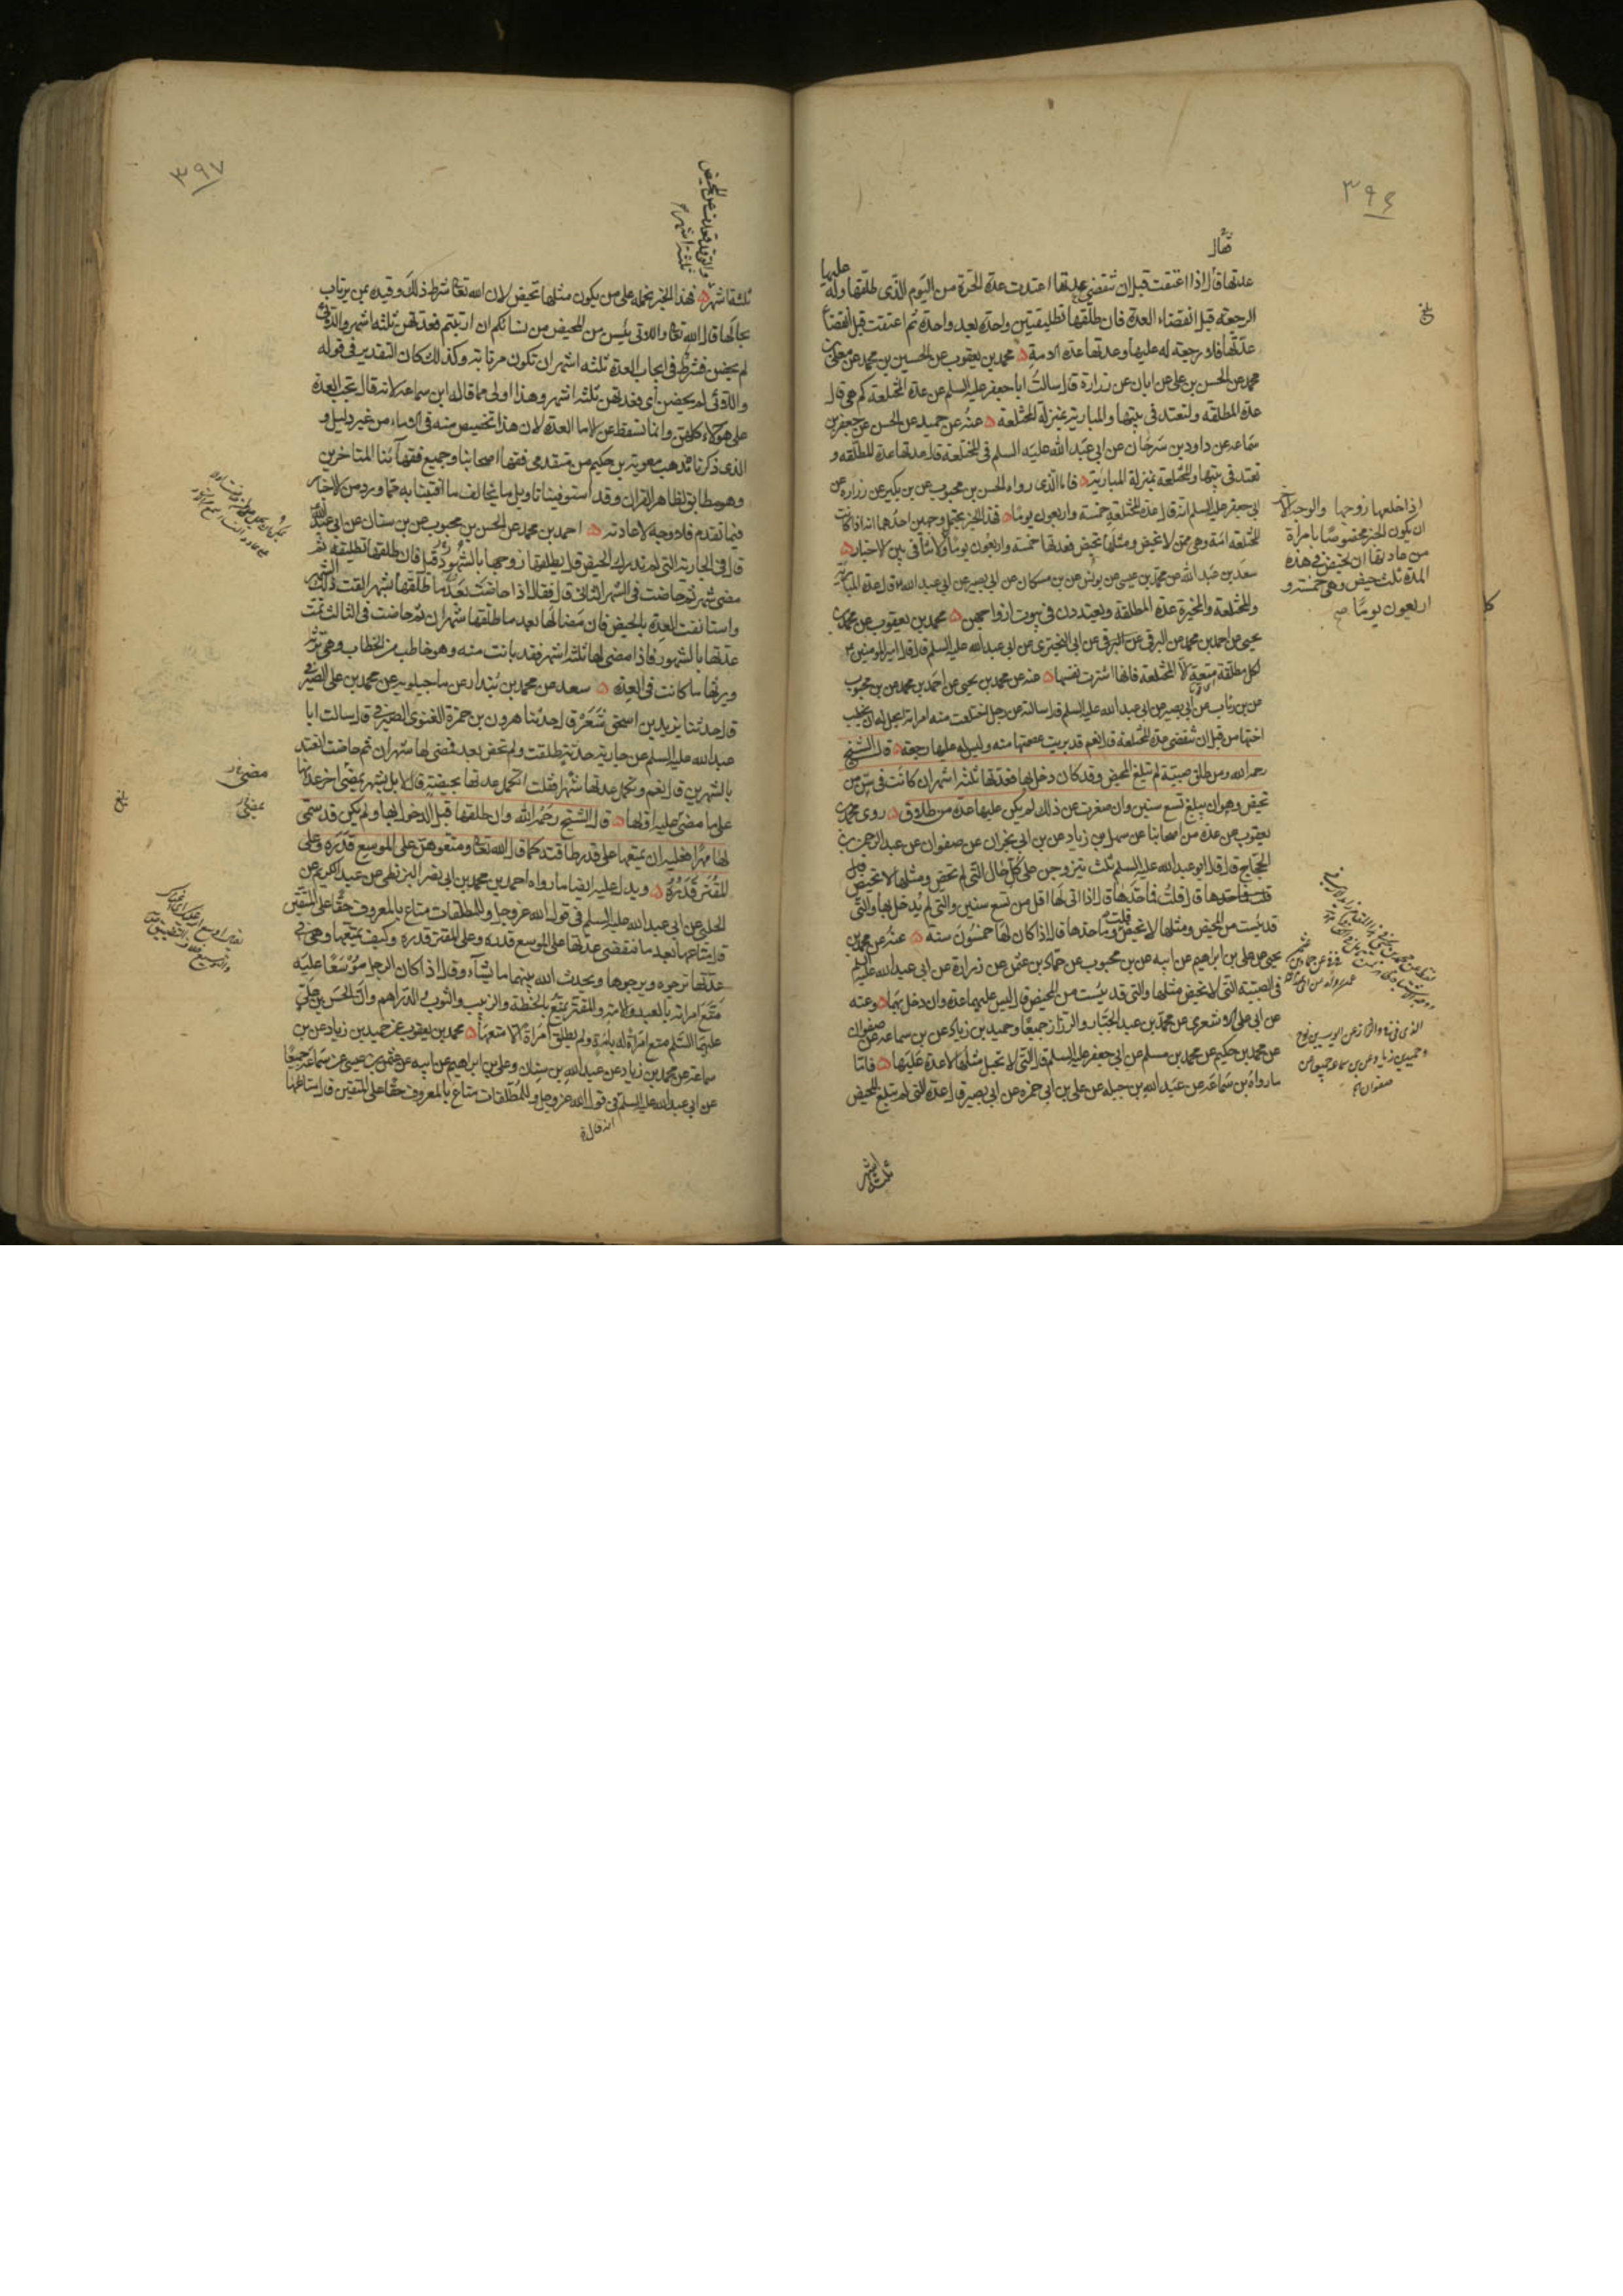 ٣٩٦
قال
عدتها قال اذا اعتقت قبل ان تنقضي عدتها اعتدت عدة الحرة من اليوم الذى طلقها وله عليها
الرجعة قبل انقضاء العدة فان طلقها تطليقتين واحدة بعد واحدة ثم اعتقت قبل انقضاء
عدتها فلا رجعة له عليها وعدتها عدة الامة محمد بن يعقوب عن الحسين بن محمد عن معلى بن
محمد عن الحسن بن على عن ابان عن زرارة قال سالت ابا جعفر عليه السلم عن عدة المختلعة كم هى قال
عدة المطلقه ولتعتد فى بيتها والمبارية بمنزلة المختلعة عنه عن حميد عن الحسن عن جعفر بن
سماعه عن داود بن سرحان عن ابى عبد الله عليه السلم فى المختلعة قال عدتها عدة المطلقه و
تعتد فى بيتها والمختلعة بمنزلة المبارية فاما الذى رواه الحسن بن محبوب عن بن بكير عن زراره عن
ابى جعفر عليه السلم انه قال عدة المختلعة خمسة واربعون يوما فهذا الخبر يحتمل وجهين احدهما انه اذا كانت
المختلعه امة وهى ممن لا تحيض ومثلها تحيض فعدتها خمسة واربعون يوما ولا تنافى بين الاخبار
سعد بن عبد الله عن محمد بن عيسى عن يونس عن بن مسكان عن ابى بصير عن ابى عبد الله قال عدة المبارية
والمختلعة والمخيرة عدة المطلقه ويعتددن فى بيوت ازواجهن محمد بن يعقوب عن محمد بن
يحيى عن احمد بن محمد عن البرقى عن ابى البخترى عن ابى عبد الله عليه السلم قال قال امير المومنين
لكل مطلقة متعة الا المختلعه فانها اشترت نفسها عنه عن محمد بن يحيى عن احمد بن محمد عن بن محبوب
عن بن رئاب عن ابى بصير عن ابى عبد الله عليه السلم قال سالته عن رجل اختلعت منه امراته ايحل له ان يخطب
اختها من قبل ان تنقضى عدة المختلعة قال نعم قد بريت عصمتها منه وليس له عليها رجعة قال الشيخ
رحمه الله ومن طلق صبية لم تبلغ المحيض وقد كان دخل بها فعدتها ثلثة اشهر ان كانت فى سن من
تحيض وهو ان يبلغ تسع سنين وان صغرت عن ذلك لم يكن عليها عدة من طلاق روى محمد بن
يعقوب عن عدة من اصحابنا عن سهل بن زياد عن بن ابى نجران عن صفوان عن عبد الرحمن بن
الحجاج قال قال ابو عبد الله عليه السلم ثلث يتزوجن على كل حال التى لم تحض ومثلها لا تحيض قال
قلت وما حدها قال اذا اتى لها اقل من تسع سنين والتى لم يدخل بها والتى
قد يئست من المحيض ومثلها لا تحيض قلت وما حدها قال اذا كان لها خمسون سنه عنه عن محمد بن
يحيى عن على بن ابراهيم عن ابيه عن بن محبوب عن حماد بن عثمن عن زرارة عن ابى عبد الله عليه السلم
فى الصبيه التى لا تحيض مثلها والتى قد يئست من المحيض قال ليس عليهما عدة وان دخل بهما وعنه
عن ابى على الاشعرى عن محمد بن عبد الجبار والرزاز جميعا وحميد بن زياد عن بن سماعه عن صفوان
عن محمد بن حكيم عن محمد بن مسلم عن ابى جعفر عليه السلم قال التى لا تحبل مثلها لا عدة عليها فاما
ما رواه بن سماعة عن عبد الله بن جبله عن على بن ابى حمزه عن ابى بصير قال عدة التى لم تبلغ المحيض
ثلثه اشهر
بلغ
اذا خلعها زوجها والوجه الآخر
ان يكون الخبر مخصوصا بامراة
من عادتها ان تحيض فى هذه
المدة ثلث حيض وهى خمسة و
اربعون يوما صح
الذى فى فى والرزاز عن ايوب بن نوح
وحميد بن زياد عن بن سماعه جميعا عن
صفوان
٣٩٧
والتى قد قعدت عن المحيض
ثلثة اشهر
ثلثة اشهر فهذا الخبر نحمله على من يكون مثلها تحيض لان الله تعالى شرط ذلك وقيده بمن يرتاب
بحالها قال الله تعالى واللائى يئسن من المحيض من نسائكم ان ارتبتم فعدتهن ثلثة اشهر واللائى
لم يحضن فشرط فى ايجاب العدة ثلثه اشهر ان تكون مرتابة وكذلك كان التقدير فى قوله
واللائى لم يحضن اى فعدتهن ثلثة اشهر وهذا اولى مما قاله ابن سماعه لانه قال تجب العدة
على هؤلاء كلهن وانما تسقط عن الاماء العدة لان هذا تخصيص منه فى الاماء من غير دليل و
الذى ذكرناه مذهب معوية بن حكيم من متقدمى فقهاء اصحابنا وجميع فقهائنا المتاخرين
وهو مطابق لظاهر القران وقد استوفينا تاويل ما يخالف ما افتينا به مما ورد من الاخبار
فيما تقدم فلا وجه لاعادته احمد بن محمد عن الحسن بن محبوب عن بن سنان عن ابى عبد الله
قال فى الجارية التى لم تدرك الحيض قال يطلقها زوجها بالشهور قيل فان طلقها تطليقه ثم
مضى شهر ثم حاضت فى الشهر الثانى قال فقال اذا حاضت بعد ما طلقها شهر القت ذلك الشهر
واستانفت العدة بالحيض فان مضى لها بعد ما طلقها شهران ثم حاضت فى الثالث تمت
عدتها بالشهور فاذا مضى لها ثلثة اشهر فقد بانت منه وهو خاطب من الخطاب وهى ترثه
ويرثها ما كانت فى العدة سعد عن محمد بن بندار عن ماجيلويه عن محمد بن على الصيرفى
قال حدثنا يزيد بن اسحق شعر قال حدثنا هرون بن حمزة الغنوى الصيرفى قال سالت ابا
عبد الله عليه السلم عن جارية حدثة طلقت ولم تحض بعد فمضى لها شهران ثم حاضت اتعتد
بالشهرين قال نعم وتكمل عدتها شهرا فقلت اتكمل عدتها بحيضة قال لا بل بشهر يمضى اخر عدتها
على ما مضى عليه اولها قال الشيخ رحمه الله وان طلقها قبل الدخول بها ولم يكن قد سمى
لها مهرا فعليه ان يمتعها على قدر طاقته كما قال الله تعالى ومتعوهن على الموسع قدره وعلى
المقتر قدره ويدل عليه ايضا ما رواه احمد بن محمد بن ابى نصر البزنطى عن عبد الكريم عن
الحلبى عن ابى عبد الله عليه السلم فى قول الله عز وجل وللمطلقات متاع بالمعروف حقا على المتقين
قال متاعها بعد ما تنقضى عدتها على الموسع قدره وعلى المقتر قدره وكيف يمتعها وهى فى
عدتها ترجوه ويرجوها ويحدث الله بينهما ما يشاء وقال اذا كان الرجل موسعا عليه
متع امراته بالعبد والامة والمقتر يمتع بالحنطة والزبيب والثوب والدراهم وان الحسن بن على
عليهما السلم متع امراة له بامة ولم يطلق امراة الا متعها محمد بن يعقوب عن حميد بن زياد عن بن
سماعة عن محمد بن زياد عن عبد الله بن سنان وعلى بن ابراهيم عن ابيه عن عثمن بن عيسى عن سماعة جميعا
عن ابى عبد الله عليه السلم فى قول الله عز وجل وللمطلقات متاع بالمعروف حقا على المتقين قال متاعها
انه قال
مضى
يمضى
بلغ